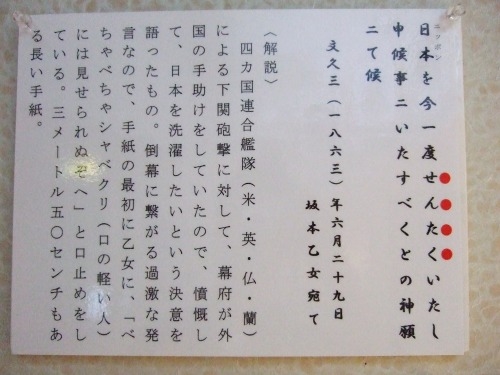 ニッポン
日本を今一度せんたくいたし
申候事ニいたすべくとの神願
ニて候
文久三(一八六三)年六月二十九日
坂本乙女宛て
〈解説〉
四カ国連合艦隊(米・英・仏・蘭)
による下関砲撃に対して、幕府が外
国の手助けをしていたので、憤慨し
て、日本を洗濯したいという決意を
語ったもの。倒幕に繋がる過激な発
言なので、手紙の最初に乙女に、「べ
ちゃべちゃシャベクリ(口の軽い人)
には見せられぬぞへ」と口止めをし
ている。三メートル五〇センチもあ
る長い手紙。